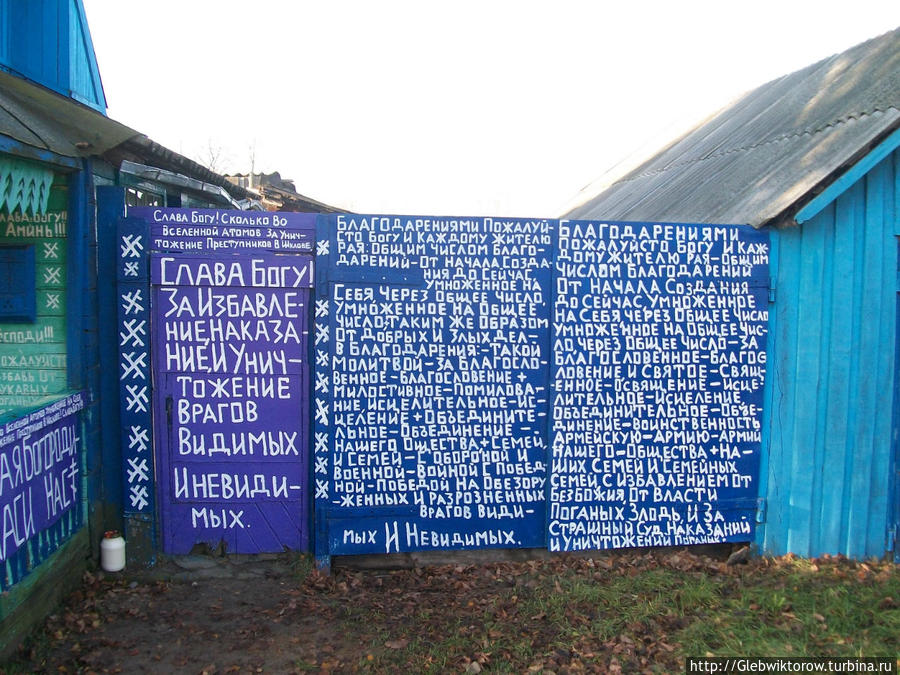 Слава Богу! Сколько Во
Вселенной Атомов За Унич-
тожение Преступников В Шклове.
Слава Богу!
За Избавле-
ние,Наказа
ние,И Унич-
тожение
Врагов
Видимых
И Невиди-
мых.
Благодарениями Пожалуй-
сто Богу и Каждому Жителю
Рая: Общим Числом Благо-
дарений-от Начала Созда-
ния до Сейчас
Умноженное на
Себя Через Общее Число,
Умноженное на Общее
Число; таким же Образом
от Добрых и Злых Дел-
в Благодарения-такой
Молитвой-за Благосло-
венное-Благословение +
Милостивное-Помилова-
ние,Исцелительное-Ис-
целение+Объедините-
льное-Объединение-
Нашего Общества+Семей,
и Семей-с Обороной и
Военной-Войной с Побед-
ной-Победой на Обезору
женных и Разрозненных
Врагов Види-
мых И Невидимых.
Благодарениями
Пожалуйсто Богу и Каж-
дому Жителю Рая-Общим
Числом Благодарений
от Начала Создания
до Сейчас Умноженное
на Себя Через Общее Число
Умноженное на Общее Чис-
ло Через Общее Число-за
Благословенное-Благос
ловение и Святое-Свящ-
енное-Освящение-Исце-
лительное-Исцеление
Объединительное-Объе-
динение-Воинственность
Армейскую-Армию-Армий
Нашего-Общества+На-
ших Семей и Семейных
Семей с Избавлением от
Безбожия,от Власти
Поганых Злодь и за
Страшный Суд, Наказаний
и Уничтожений
Слава Богу!!!
Аминь!!!
Господи!!!
Пожалуйста
Избавь от
Лукавых
ая Богороди-
аси Нас!